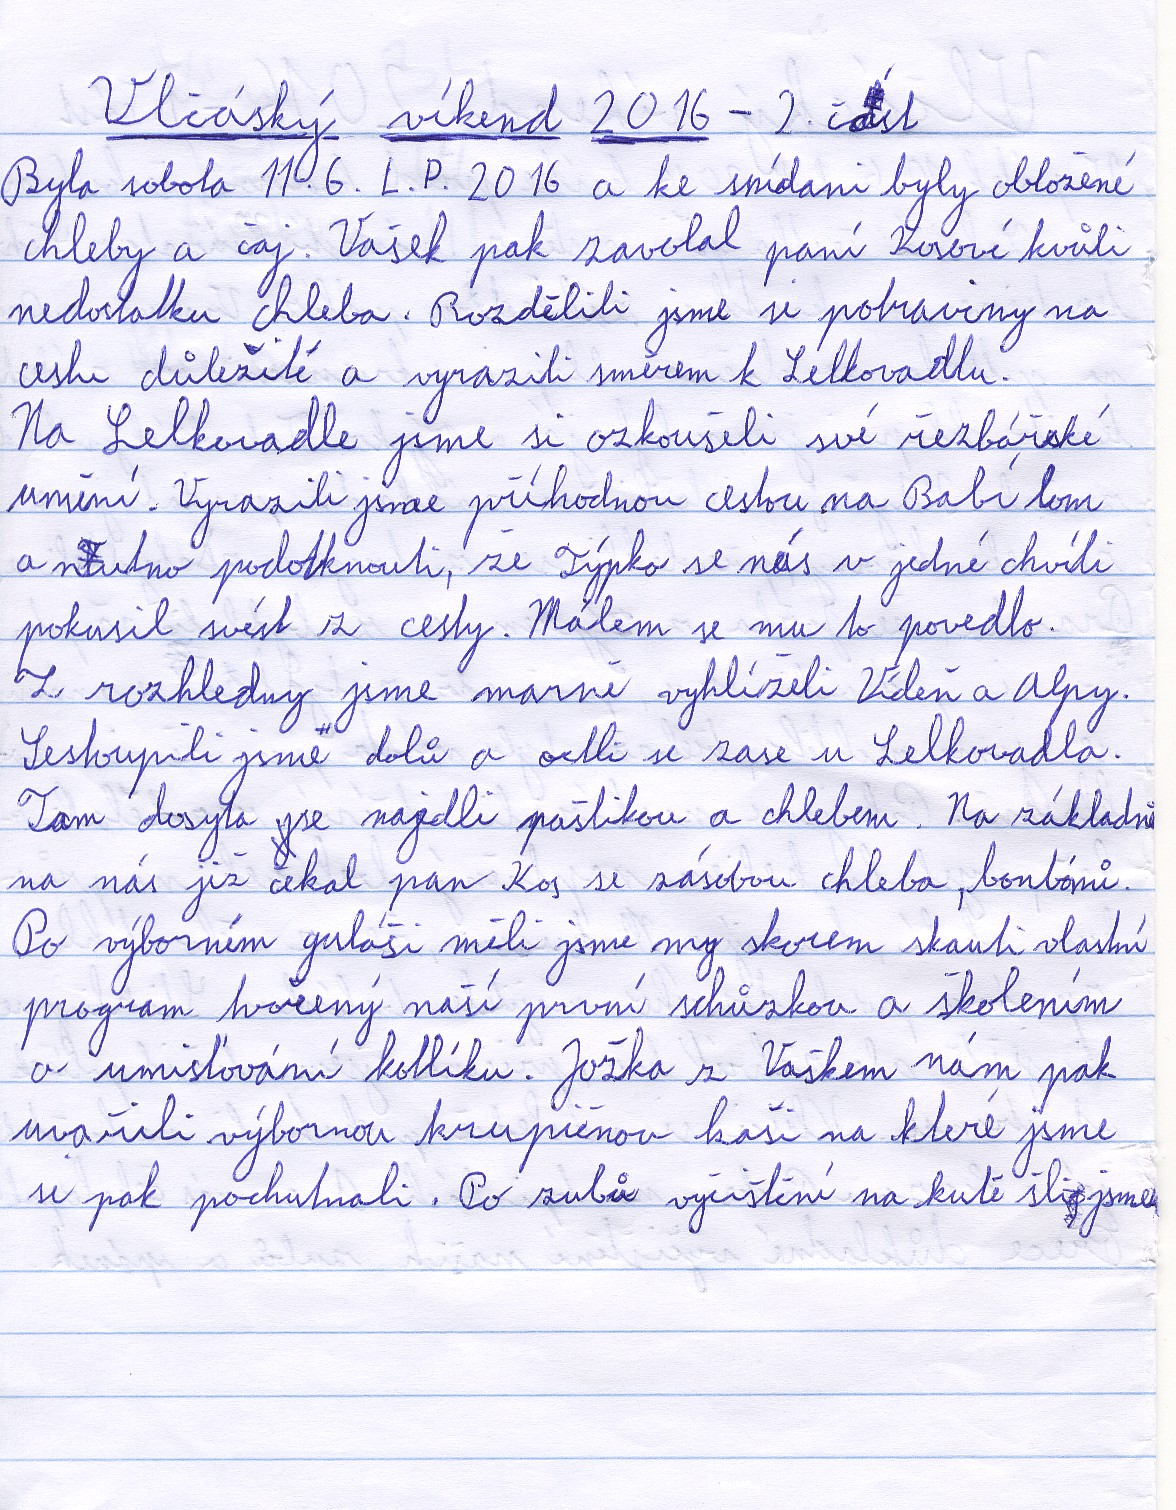 Vlčáský víkend 2016 - 2. část
Byla sobota 11. 6. L.P. 2016 a ke snídani byly obložené
chleby a čaj. Vašek pak zavolal paní Kosové kvůli
nedostatku chleba. Rozdělili jsme si potraviny na
cestu důležité a vyrazili směrem k Lelkovadlu.
Na Lelkovadle jsme si ozkoušeli své řezbářské
umění. Vyrazili jsme příhodnou cestou na Babí lom
a nutno podotknouti, že Týpko se nás v jedné chvíli
pokusil svést z cesty. Málem se mu to povedlo.
Z rozhledny jsme marně vyhlíželi Vídeň a Alpy.
Sestoupili jsme dolů a octli se zase u Lelkovadla.
Tam dosyta jse najedli paštikou a chlebem. Na základně
na nás již čekal pan Kos se zásobou chleba, bonbónů.
Po výborném guláši měli jsme my skorem skauti vlastní
program tvořený naší první schůzkou a školením
o umisťování kotlíku. Jožka z Vaškem nám pak
uvařili výbornou krupičnou kaši na které jsme
si pak pochutnali. Po zubů vyčištění na kutě šli jsme